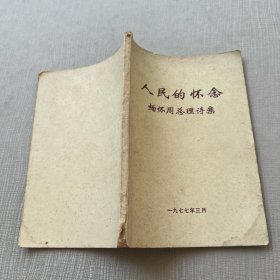 人民的怀念
缅怀周总理诗集
一九七七年三月